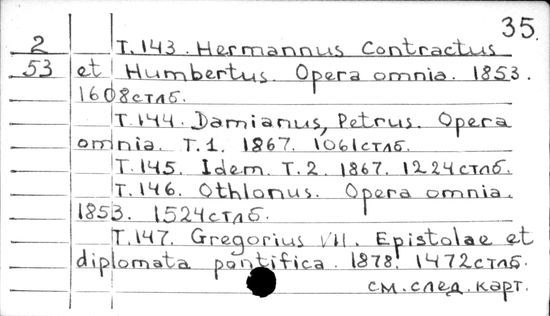 35.
2 Т.143. Hermannus Contractus
53 et Humbertus. Opera omnia. 1853.
1608стлб.
Т.144. Damianus, Petrus. Opera
omnia. Т.1. 1867. 1061стлб.
Т.145. Idem. Т.2. 1867. 1224стлб.
Т.146. Othlonus. Opera omnia.
1853. 1524стлб.
Т.147. Gregorius VII. Epistolae et
diplomata pontifica. 1878. 1472стлб.
см.след.карт.